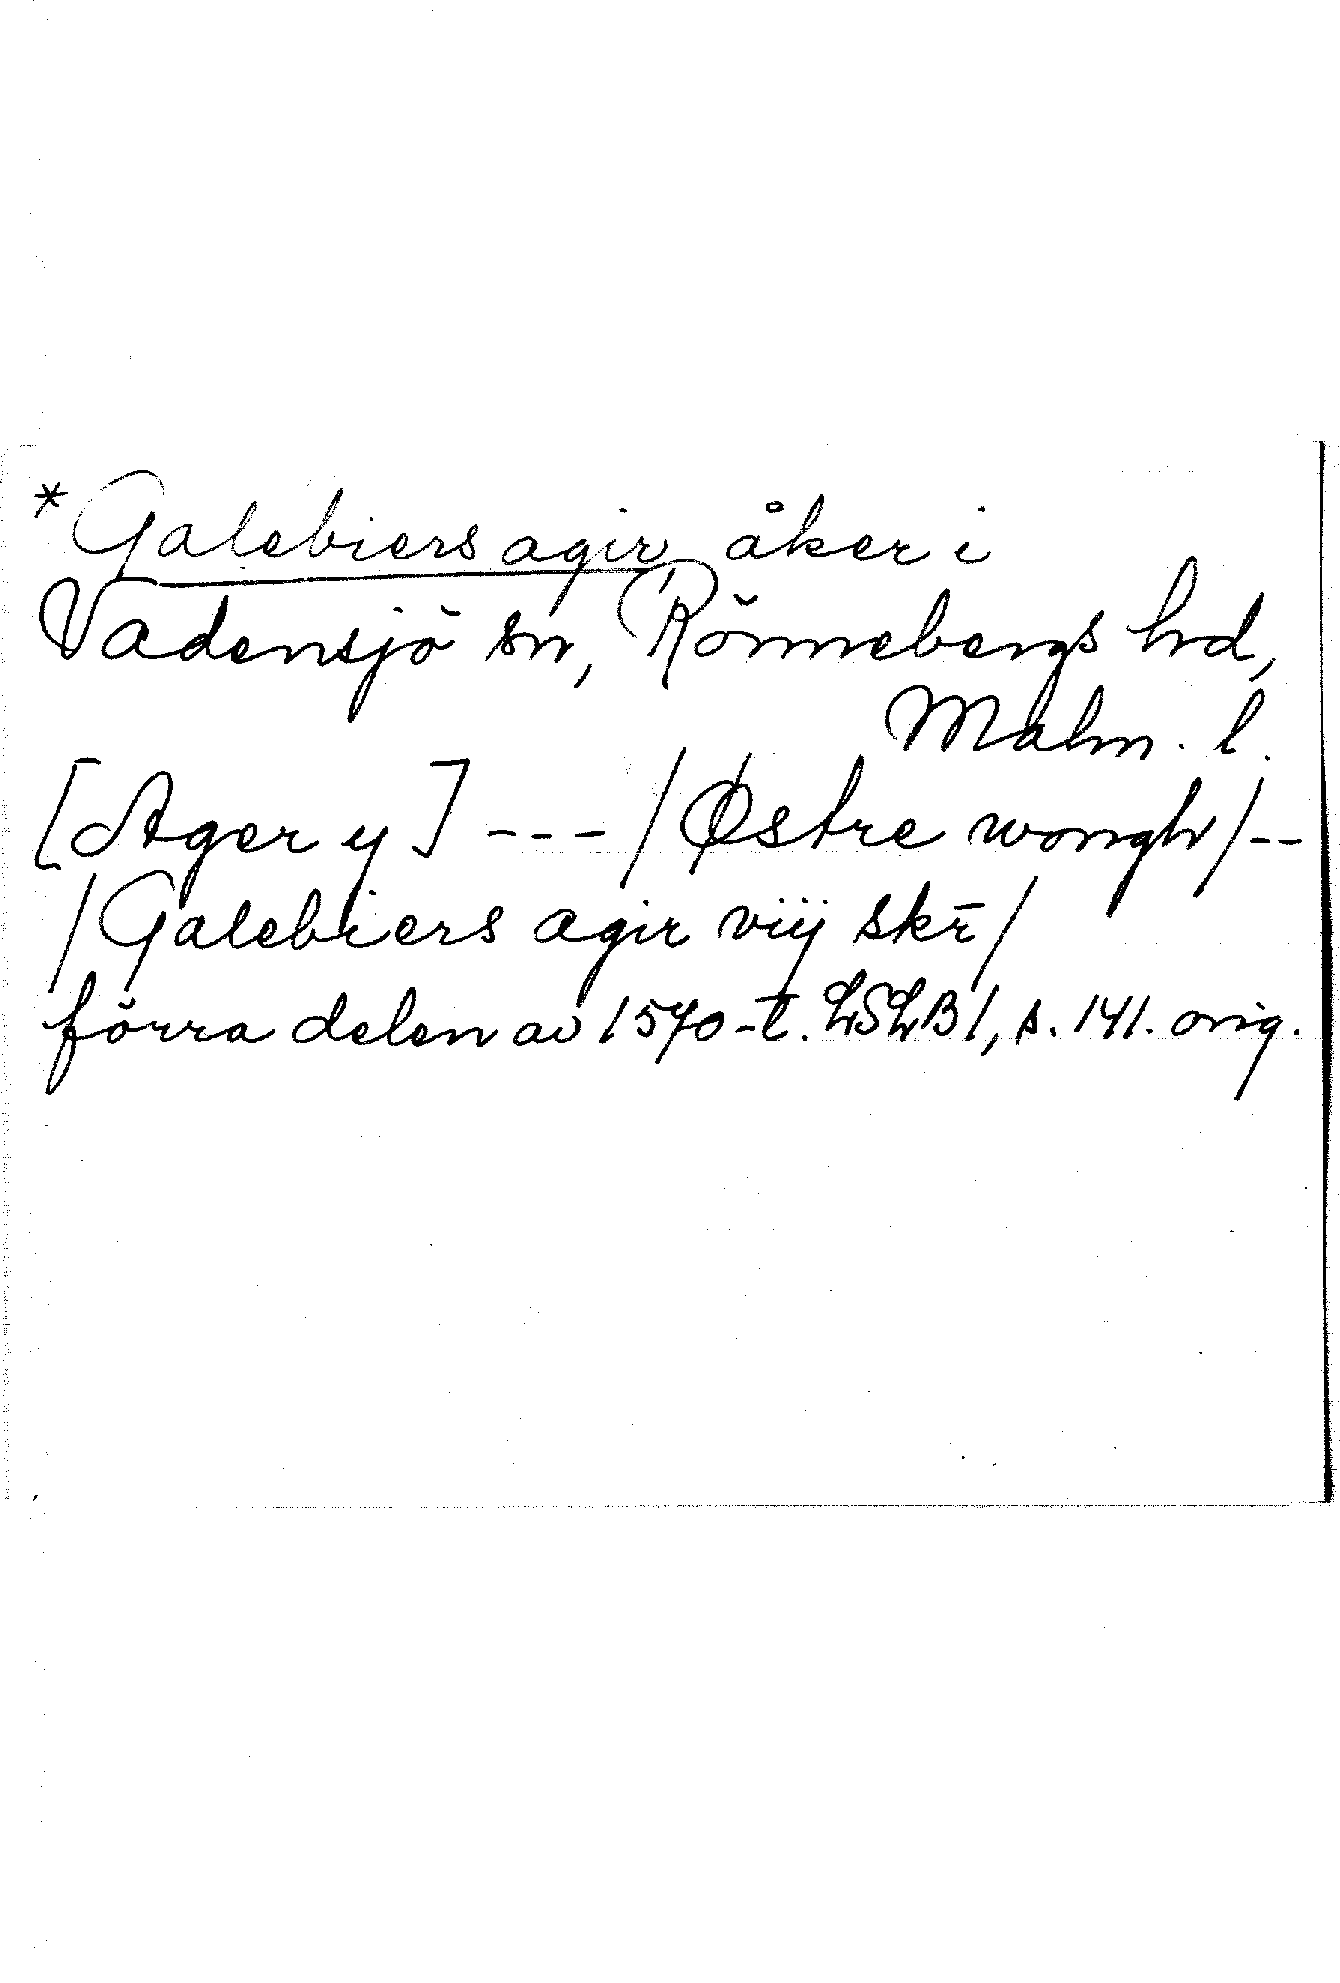 *Galebiers agir, åker i
Vadensjö sn, Rönnebergs hd,
Malm. l.
[Ager y] --- /Østre wongh/--
/Galebiers agir viij skr̄/
förra delen av 1570-t. LSLB 1, s. 141. orig.